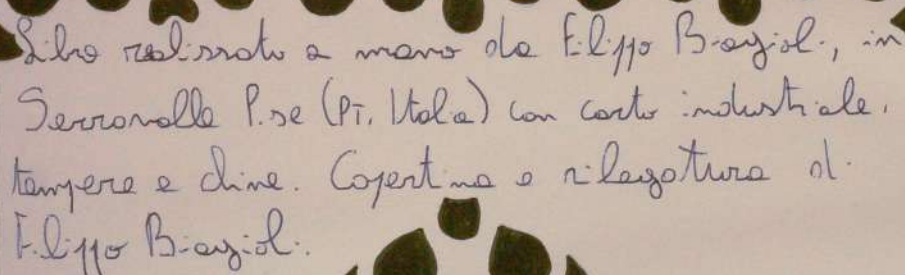 Libro realizzato a mano da Filippo Biagioli, in
Serravalle P.se (PT, Italia) con carta industriale,
tempera e china. Copertina e rilegatura di
Filippo Biagioli.